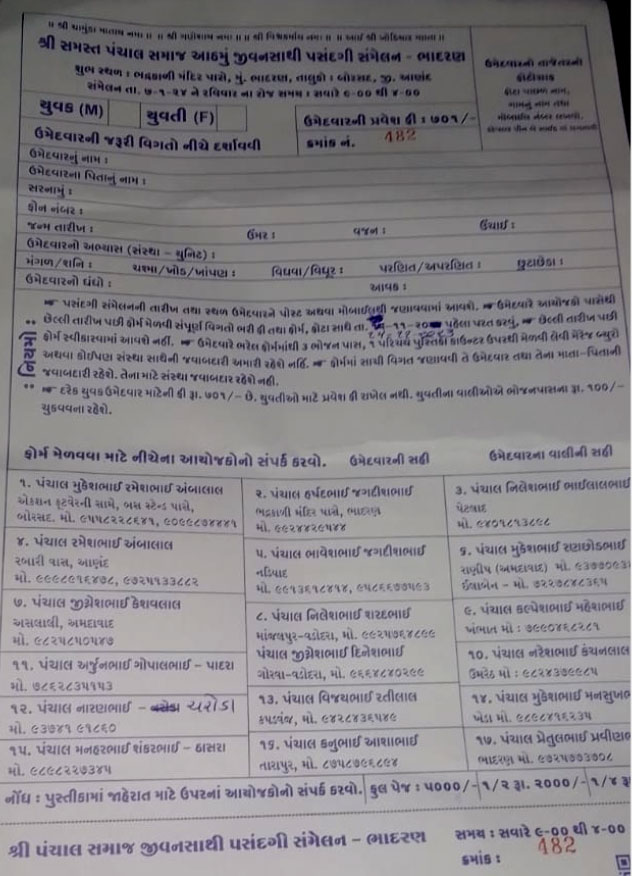 ॥ શ્રી ચામુંડા માતાય નમઃ ॥ ॥ શ્રી ગણેશાય નમઃ ॥ ॥ શ્રી વિશ્વકર્માય નમઃ ॥ ॥ આઈ શ્રી ખોડિયાર માતાય ॥
શ્રી સમસ્ત પંચાલ સમાજ આઠમું જીવનસાથી પસંદગી સંમેલન - ભાદરણ
શુભ સ્થળ : ભદ્રકાળી મંદિર પાસે, મું. ભાદરણ, તાલુકો : બોરસદ, જી. આણંદ
સંમેલન તા. ૭-૧-૨૪ ને રવિવાર ના રોજ સમય : સવારે ૯-૦૦ થી ૪-૦૦
ઉમેદવારનો તાજેતરનો
ફોટોગ્રાફ
ફોટા પાછળ નામ,
ગામનું નામ તથા
મોબાઈલ નંબર લખવો,
યુવક (M)
યુવતી (F)
ઉમેદવારની પ્રવેશ ફી : ૭૦૧/-
ઉમેદવારની જરૂરી વિગતો નીચે દર્શાવવી
ક્રમાંક નં. 482
ઉમેદવારનું નામ :
ઉમેદવારના પિતાનું નામ :
સરનામું :
ફોન નંબર :
જન્મ તારીખ : ઉંમર : વજન : ઉંચાઈ :
ઉમેદવારનો અભ્યાસ (સંસ્થા - યુનિટ) :
મંગળ/શનિ : ચશ્મા/ખોડ/ખાંપણ : વિધવા/વિધુર : પરણિત/અપરણિત : છુટાછેડા :
ઉમેદવારનો ધંધો : આવક :
નિયમો :
☛ પસંદગી સંમેલનની તારીખ તથા સ્થળ ઉમેદવારને પોસ્ટ અથવા મોબાઈલથી જણાવવામાં આવશે. ☛ ઉમેદવારે આયોજકો પાસેથી
છેલ્લી તારીખ પછી ફોર્મ મેળવી સંપૂર્ણ વિગતો ભરી ફી તથા ફોર્મ, ફોટા સાથે તા. -૧૧- પહેલા પરત કરવું. ☛ છેલ્લી તારીખ પછી
ફોર્મ સ્વીકારવામાં આવશે નહીં. ☛ ઉમેદવારે ભરેલ ફોર્મમાંથી ૩ ભોજન પાસ, ૧ પરિચય પુસ્તિકા કાઉન્ટર ઉપરથી મેળવી લેવી મેરેજ બ્યુરો
અથવા કોઈપણ સંસ્થા સાથેની જવાબદારી અમારી રહેશે નહિં. ☛ ફોર્મમાં સાચી વિગત જણાવવી તે ઉમેદવાર તથા તેના માતા-પિતાની
જવાબદારી રહેશે. તેના માટે સંસ્થા જવાબદાર રહેશે નહી.
☛ દરેક યુવક ઉમેદવાર માટેની ફી રૂા. ૭૦૧/- છે. યુવતીઓ માટે પ્રવેશ ફી રાખેલ નથી. યુવતીના વાલીઓએ ભોજનપાસના રૂા. ૧૦૦/-
ચુકવવના રહેશે.
ફોર્મ મેળવવા માટે નીચેના આયોજકોનો સંપર્ક કરવો. ઉમેદવારની સહી ઉમેદવારના વાલીની સહી
૧. પંચાલ મુકેશભાઈ રમેશભાઈ અંબાલાલ
એકશન ફૂટવેરની સામે, બસ સ્ટેન્ડ પાસે,
બોરસદ. મો. ૯૫૫૮૨૨૮૬૪૧, ૯૦૯૯૮૭૪૪૪૧
૨. પંચાલ હર્ષદભાઈ જગદીશભાઈ
ભદ્રકાળી મંદિર પાસે, ભાદરણ
મો. ૯૯૨૪૪૨૯૫૪૪
૩. પંચાલ નિલેશભાઈ ભાઈલાલભાઈ
પેટલાદ
મો. ૯૪૦૧૮૧૩૮૯૮
૪. પંચાલ રમેશભાઈ અંબાલાલ
રબારી વાસ, આણંદ
મો. ૯૯૯૮૯૧૬૪૭૮, ૯૭૨૫૧૩૩૮૮૨
૫. પંચાલ ભાવેશભાઈ જગદીશભાઈ
નડિયાદ
મો. ૯૯૧૩૬૧૮૪૧૪, ૯૫૮૬૬૭૭૫૯૩
૬. પંચાલ મુકેશભાઈ રણછોડભાઈ
રાણીપ (અમદાવાદ) મો. ૯૩૭૭૦૯૩
ઈલાબેન - મો. ૭૨૨૭૮૪૮૩૬૫
૭. પંચાલ જીગ્નેશભાઈ કેશવલાલ
અસલાલી, અમદાવાદ
મો. ૯૮૨૫૮૫૦૫૪૭
૮. પંચાલ નિલેશભાઈ શરદભાઈ
માંજલપુર-વડોદરા, મો. ૯૯૨૫૭૬૪૮૯૯
પંચાલ જીગ્નેશભાઈ દિનેશભાઈ
ગોરવા-વડોદરા, મો. ૯૬૬૪૮૪૦૨૯૯
૯. પંચાલ કલ્પેશભાઈ મહેશભાઈ
ખંભાત મો : ૭૯૯૦૪૬૮૨૮૧
૧૦. પંચાલ નરેશભાઈ કંચનલાલ
ઉમરેઠ મો : ૯૮૨૪૩૭૯૯૮૫
૧૧. પંચાલ અર્જુનભાઈ ગોપાલભાઈ - પાદરા
મો. ૭૮૬૨૮૩૫૧૫૩
૧૨. પંચાલ નારણભાઈ - ચરોડા
મો. ૯૩૭૪૧ ૯૧૮૬૦
૧૩. પંચાલ વિજયભાઈ રતીલાલ
કપડવંજ, મો. ૯૪૨૮૪૩૬૫૪૯
૧૪. પંચાલ મુકેશભાઈ મનસુખભ
ખેડા મો : ૯૮૯૮૪૧૬૨૩૫
૧૫. પંચાલ મનહરભાઈ શંકરભાઈ - ઠાસરા
મો. ૯૮૯૮૨૨૭૩૪૫
૧૬. પંચાલ કનુભાઈ આશાભાઈ
તારાપુર, મો. ૮૭૫૮૭૯૬૮૯૪
૧૭. પંચાલ પ્રેતુલભાઈ પ્રવીણભ
ભાદરણ મો. ૯૭૨૫૭૭૩૭૦૮
નોંધ : પુસ્તીકામાં જાહેરાત માટે ઉપરનાં આયોજકોનો સંપર્ક કરવો. ફુલ પેજ : ૫૦૦૦/- ૧/૨ રૂા. ૨૦૦૦/- ૧/૪ રૂ
શ્રી પંચાલ સમાજ જીવનસાથી પસંદગી સંમેલન - ભાદરણ
સમય : સવારે ૯-૦૦ થી ૪-૦૦
ક્રમાંક : 482